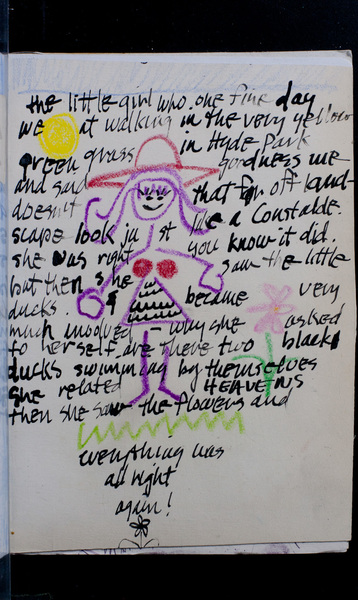 the little girl who one fine day
we at walking in the very yellow
green grass in Hyde Park
and said goodness me
that far off land-
doesnt
scape look ju st like a Constable.
she was right you know it did.
but then she saw the little
ducks. & became very
much involved - why she asked
to herself are there two black
ducks swimming by themselves
she related HEAVENS
then she saw the flowers and
everything was
all right
again!